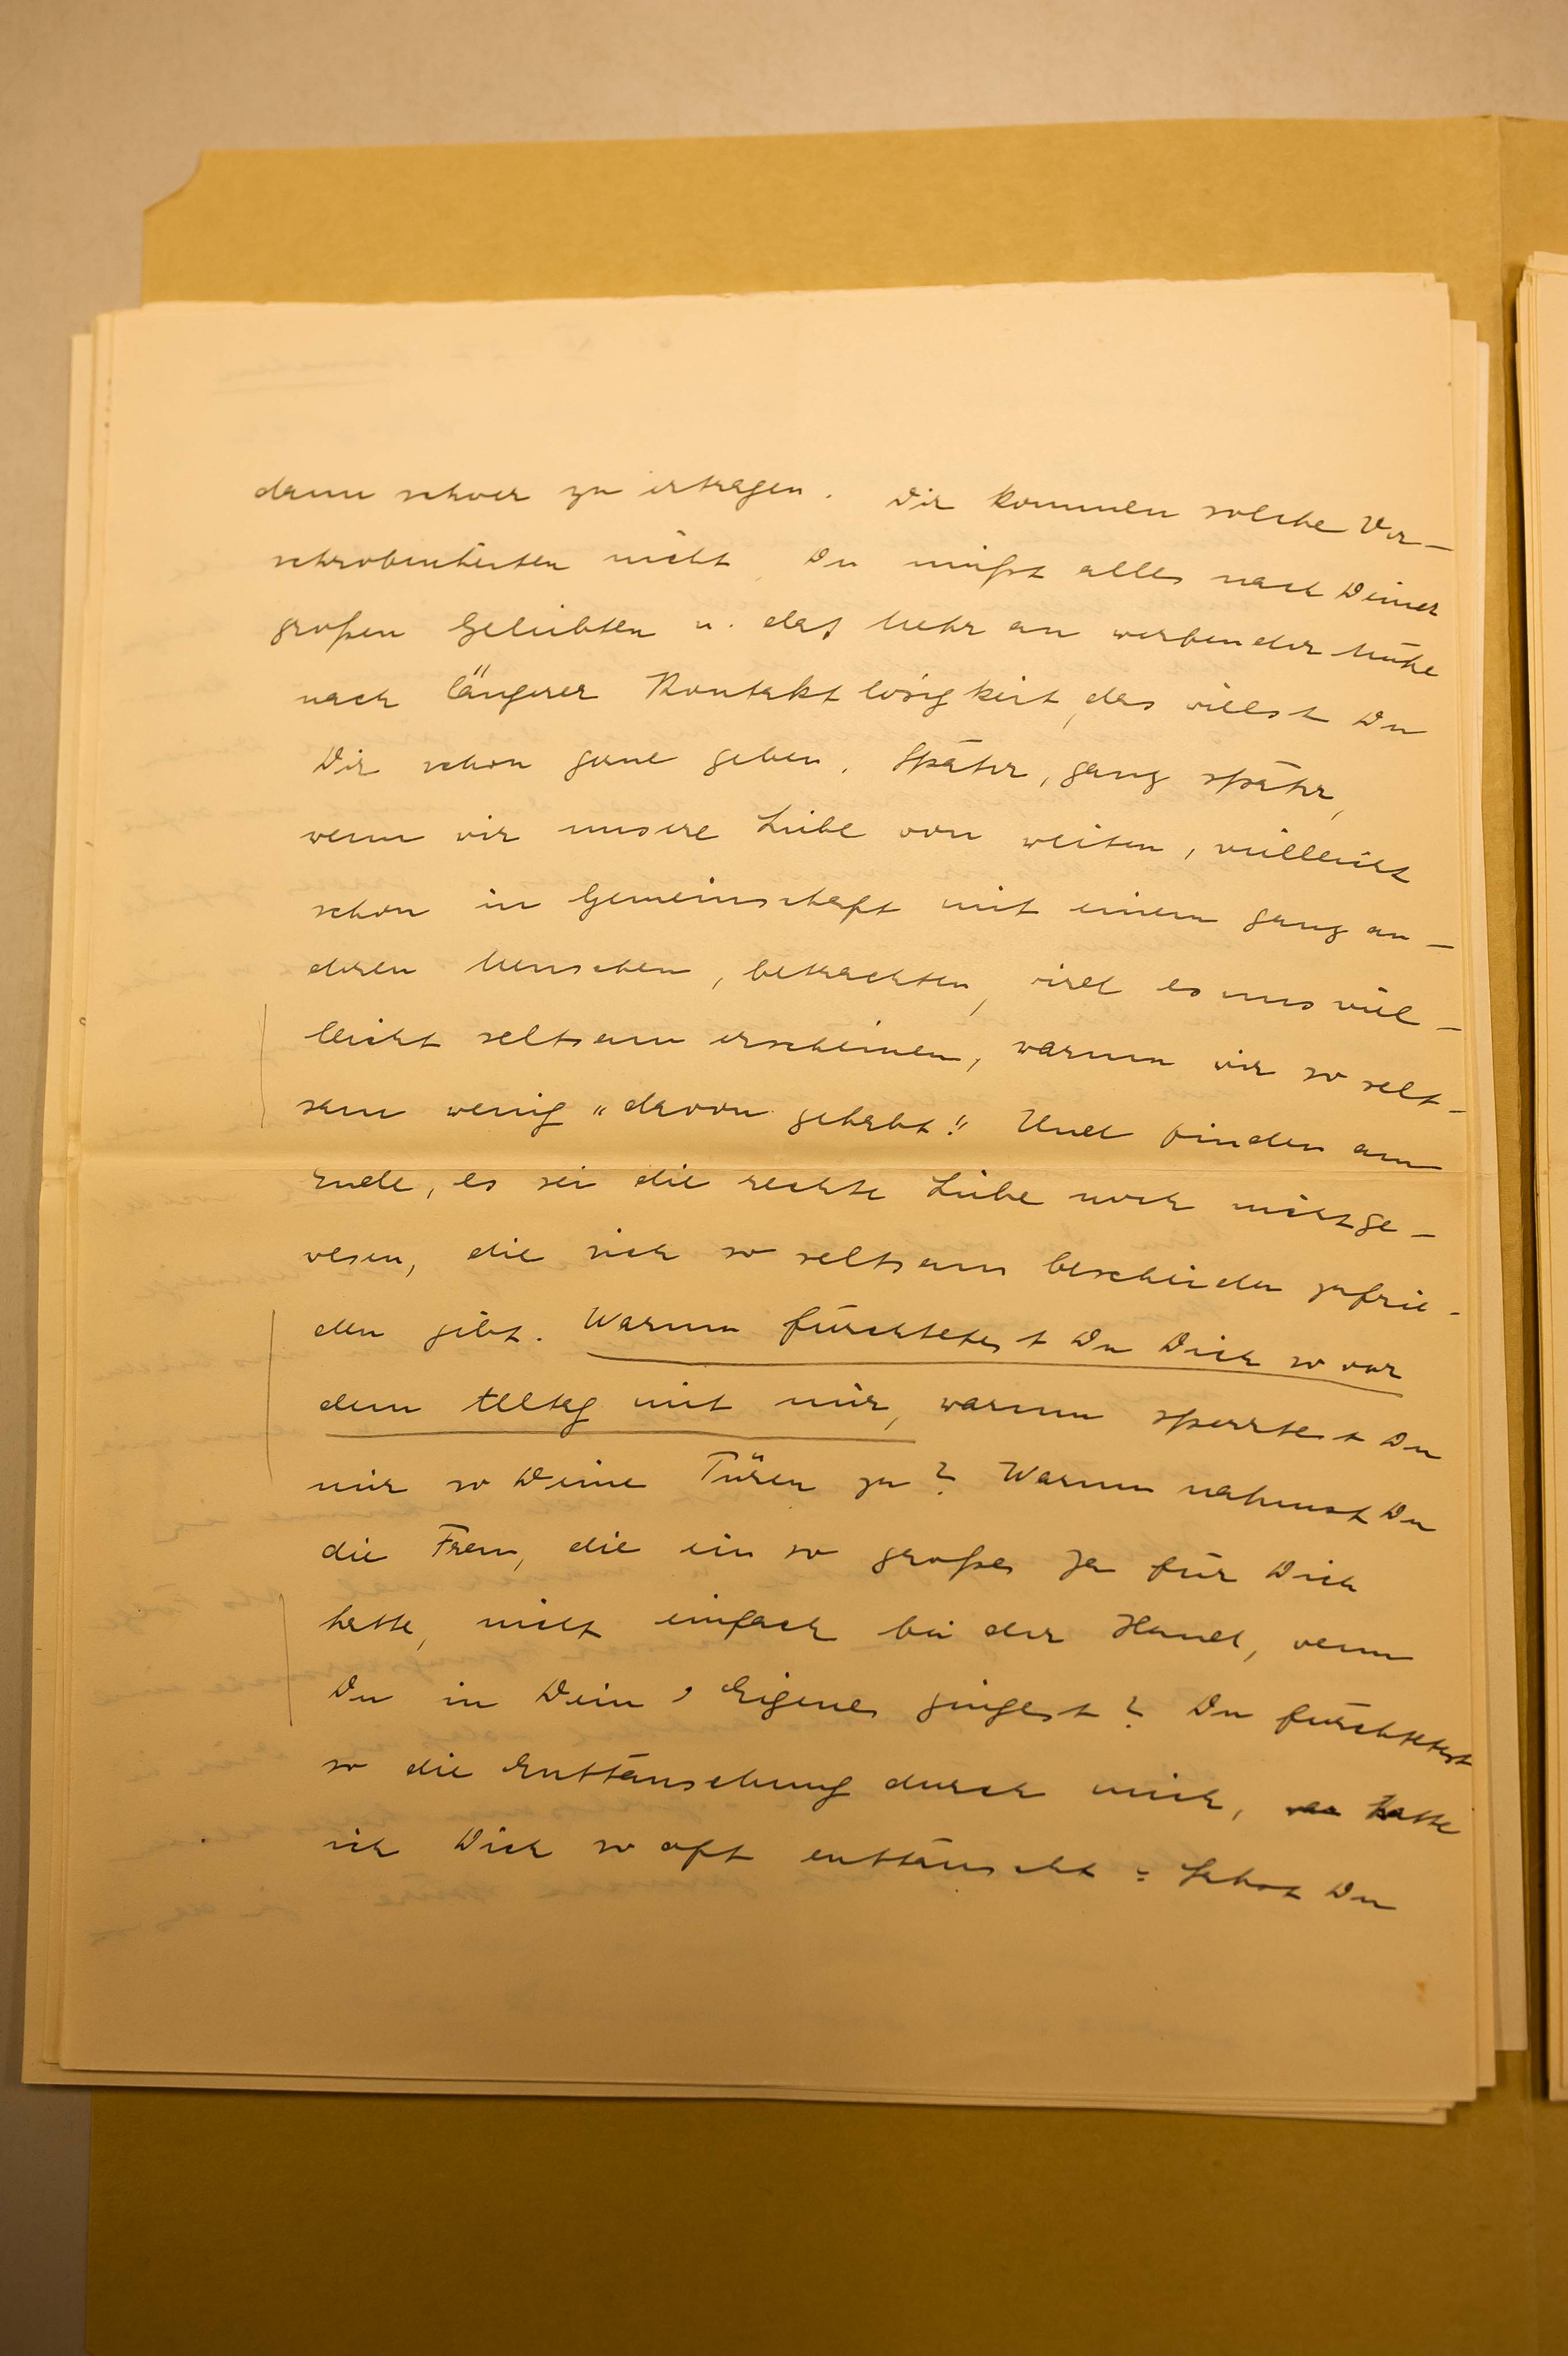 dann schwer zu ertragen. Dir kommen solche Ver-
schrobenheiten nicht, Du mißt alles nach Deiner
großen Geliebten u. das Mehr an werbender Mühe
nach längerer Kontaktlosigkeit, das willst Du
Dir schon geben. Später, ganz später,
wenn wir unsere Liebe von weitem, vielleicht
schon in Gemeinschaft mit einem ganz an-
deren Menschen, betrachten, wird es uns viel-
leicht seltsam erscheinen, warum wir so selt-
sam wenig „davon gehabt." Und finden am
Ende, es sei die rechte Liebe noch nicht ge-
wesen, die sich so seltsam bescheiden zufrie-
den gibt. Warum fürchtetest Du Dich so vor
dem Alltag mit mir, warum sperrtest Du
mir so Deine Türen zu? Warum nahmst Du
die Frau, die ein so großes Ja für Dich
hatte, nicht einfach bei der Hand, wenn
Du in Dein Eigenes gingest? Du fürchtetest
so die Enttäuschung durch mich, hatte
ich Dich so oft enttäuscht? Du